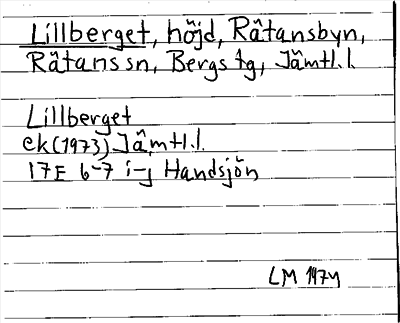 Lillberget, höjd, Råtansbyn,
Råtans sn, Bergs tg, Jämtl.l.
Lillberget
ek (1973) Jämtl.l.
17E 6-7 i-j Handsjön
LM 1974